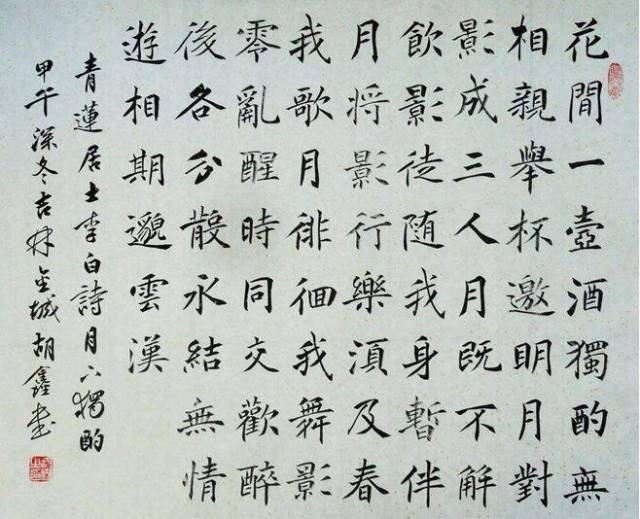 花間一壺酒獨酌無
相親舉杯邀明月對
影成三人月既不解
飲影徒随我身暫伴
月将影行樂須及春
我歌月徘徊我舞影
零亂醒時同交歡醉
後各分散永結無情
遊相期邈雲漢
青蓮居士李白詩月下獨酌
甲午深冬吉林金城胡鑫書